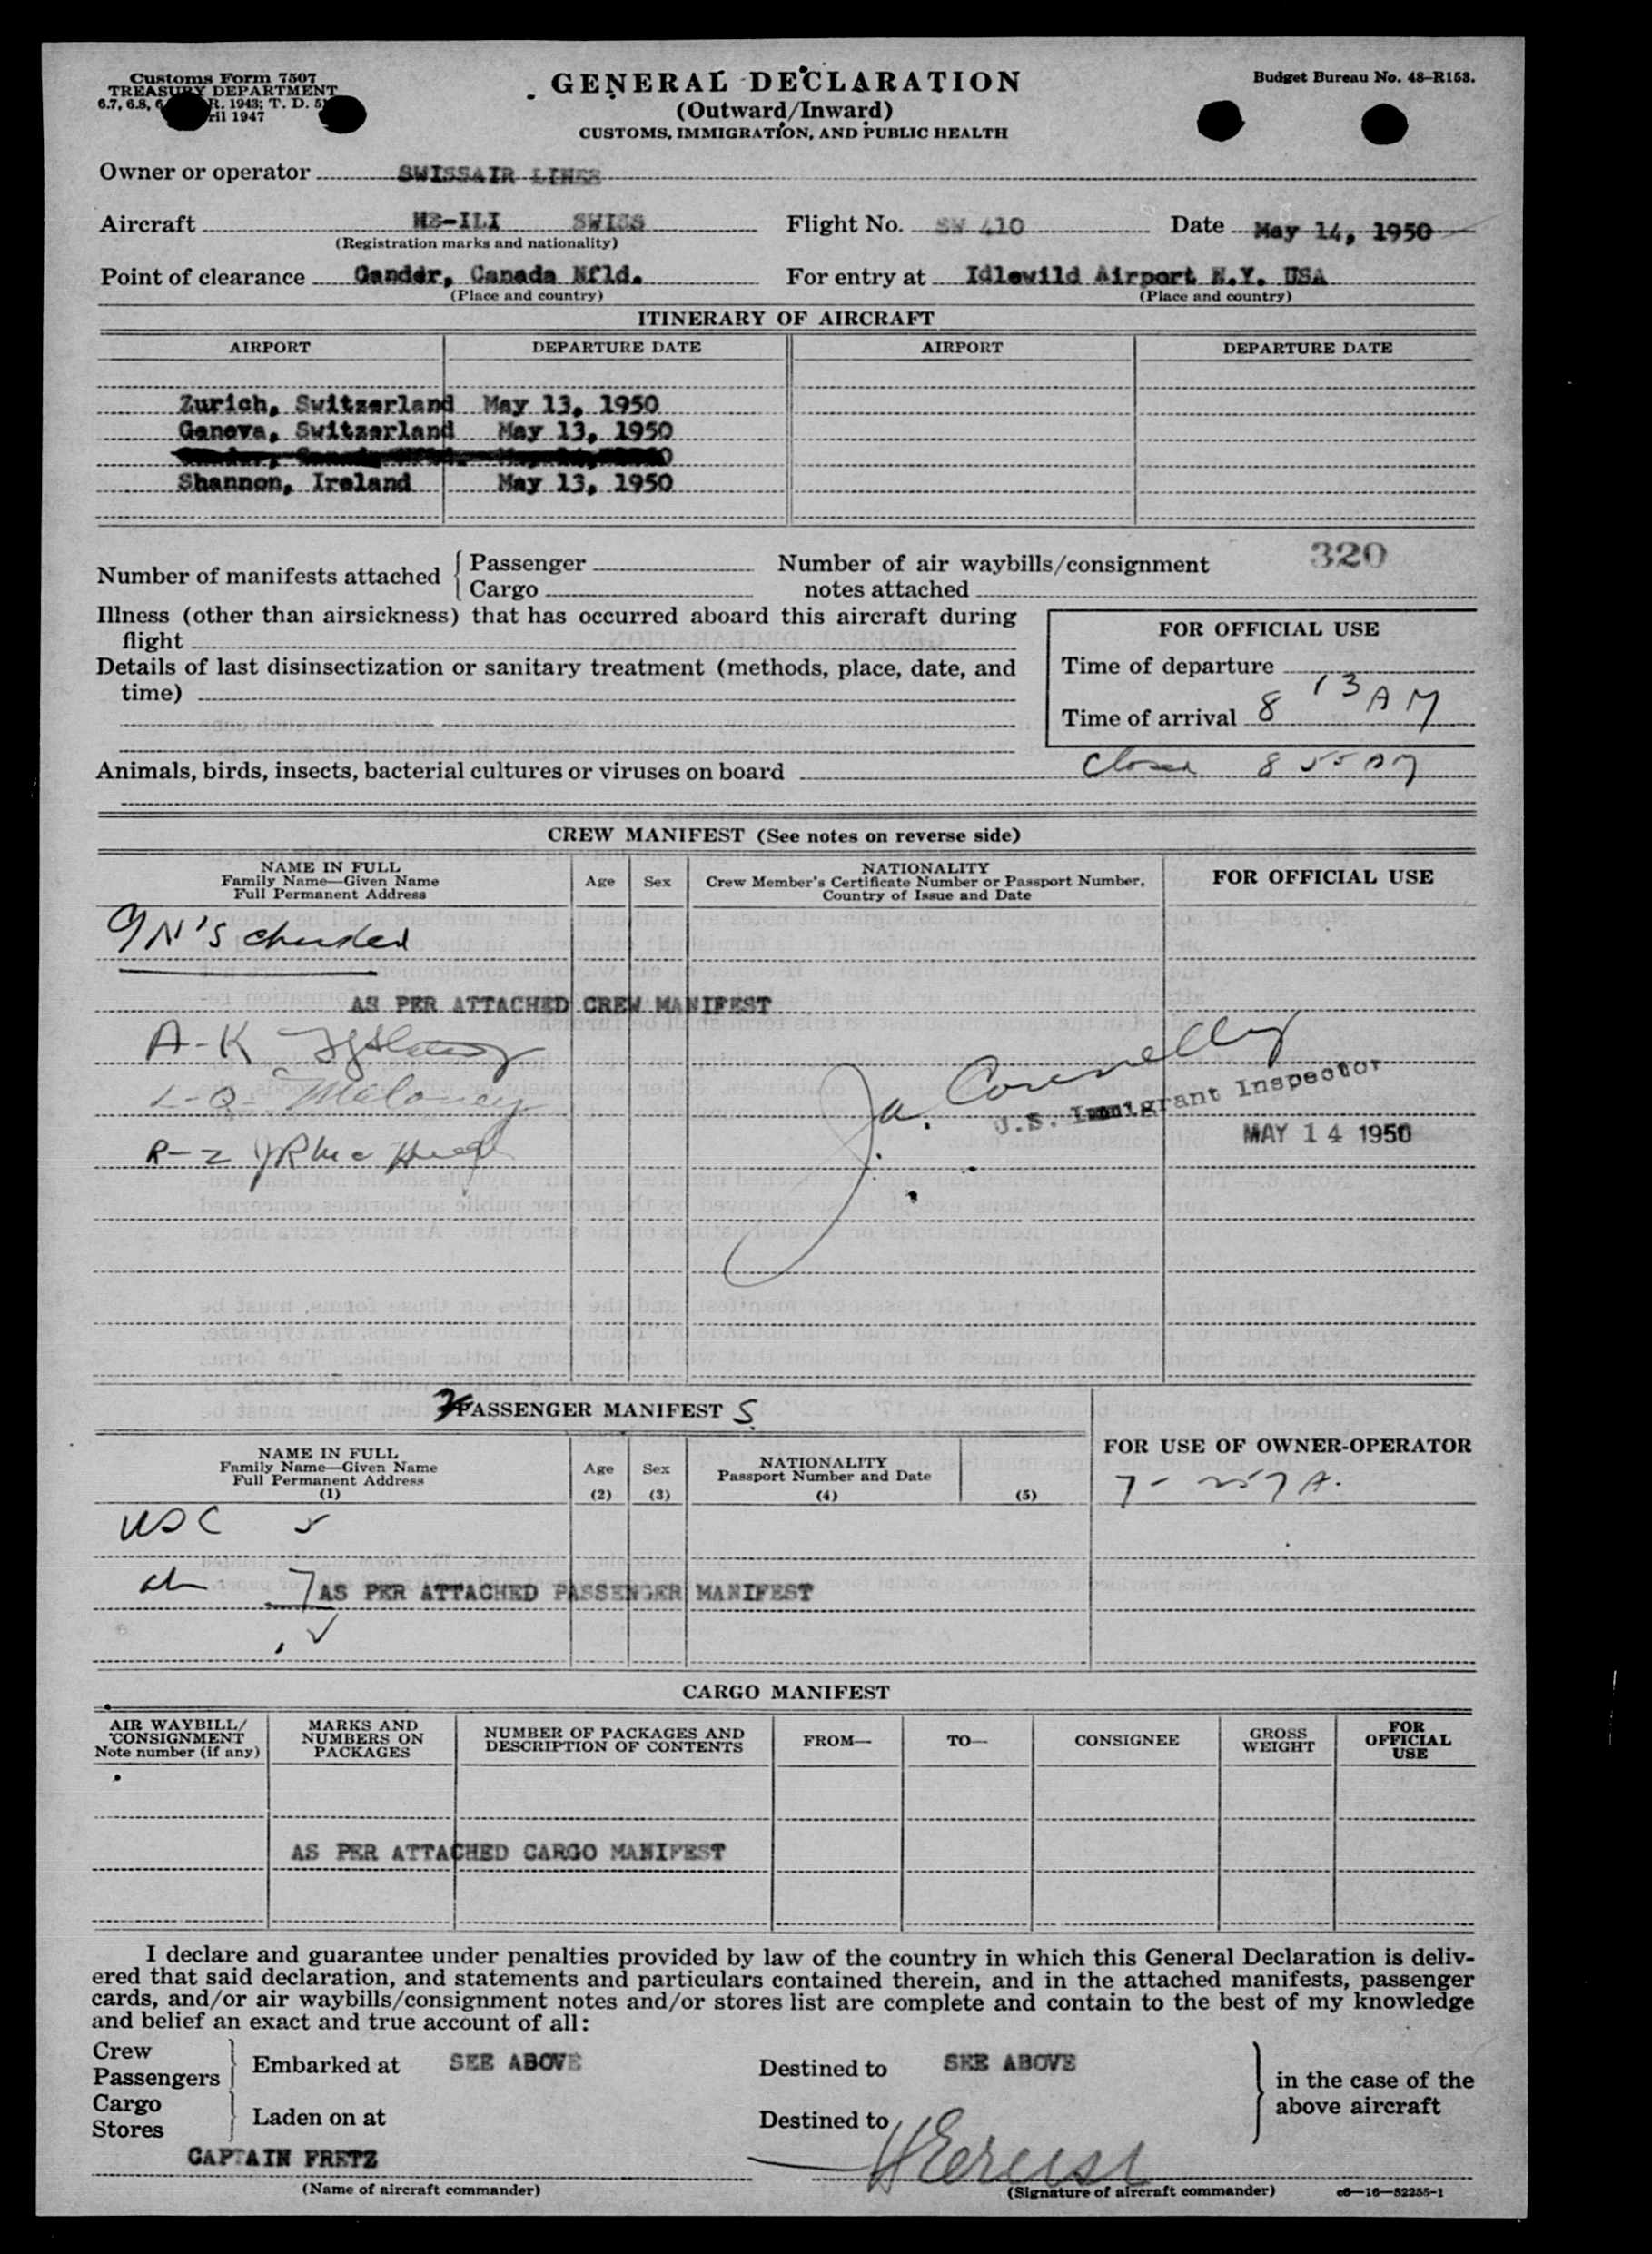 Customs Form 7507
TREASURY DEPARTMENT
6.7, 6.8, R. 1943; T. D.
1947
GENERAL DECLARATION
(Outward/Inward)
CUSTOMS, IMMIGRATION, AND PUBLIC HEALTH
Budget Bureau No. 48-R153.
Owner or operator SWISSAIR LINES
Aircraft HB-ILI SWISS Flight No. SW 410 Date May 14, 1950
(Registration marks and nationality)
Point of clearance Gander, Canada Nfld. For entry at Idlewild Airport N.Y. USA
(Place and country) (Place and country)
ITINERARY OF AIRCRAFT
AIRPORT DEPARTURE DATE AIRPORT DEPARTURE DATE
Zurich, Switzerland May 13, 1950
Geneva, Switzerland May 13, 1950
Shannon, Ireland May 13, 1950
320
Number of manifests attached { Passenger Number of air waybills/consignment
Cargo notes attached
Illness (other than airsickness) that has occurred aboard this aircraft during
flight
Details of last disinsectization or sanitary treatment (methods, place, date, and
time)
FOR OFFICIAL USE
Time of departure
Time of arrival 8 13 AM
Animals, birds, insects, bacterial cultures or viruses on board
Closed 8 55 AM
CREW MANIFEST (See notes on reverse side)
NAME IN FULL
Family Name—Given Name
Full Permanent Address
Age Sex
NATIONALITY
Crew Member's Certificate Number or Passport Number,
Country of Issue and Date
FOR OFFICIAL USE
checked
AS PER ATTACHED CREW MANIFEST
A-K
L-Q- Maloney
R-Z
Connelly
U.S. Immigrant Inspector
MAY 14 1950
PASSENGER MANIFEST S
NAME IN FULL
Family Name—Given Name
Full Permanent Address
(1)
Age
(2)
Sex
(3)
NATIONALITY
Passport Number and Date
(4) (5)
FOR USE OF OWNER-OPERATOR
USC 5
7 AS PER ATTACHED PASSENGER MANIFEST
CARGO MANIFEST
AIR WAYBILL/
CONSIGNMENT
Note number (if any)
MARKS AND
NUMBERS ON
PACKAGES
NUMBER OF PACKAGES AND
DESCRIPTION OF CONTENTS
FROM— TO— CONSIGNEE
GROSS
WEIGHT
FOR
OFFICIAL
USE
AS PER ATTACHED CARGO MANIFEST
I declare and guarantee under penalties provided by law of the country in which this General Declaration is deliv-
ered that said declaration, and statements and particulars contained therein, and in the attached manifests, passenger
cards, and/or air waybills/consignment notes and/or stores list are complete and contain to the best of my knowledge
and belief an exact and true account of all:
Crew
Passengers } Embarked at SEE ABOVE Destined to SEE ABOVE
Cargo
Stores } Laden on at Destined to
} in the case of the
above aircraft
CAPTAIN FRETZ
(Name of aircraft commander) (Signature of aircraft commander) c6—16—52255-1